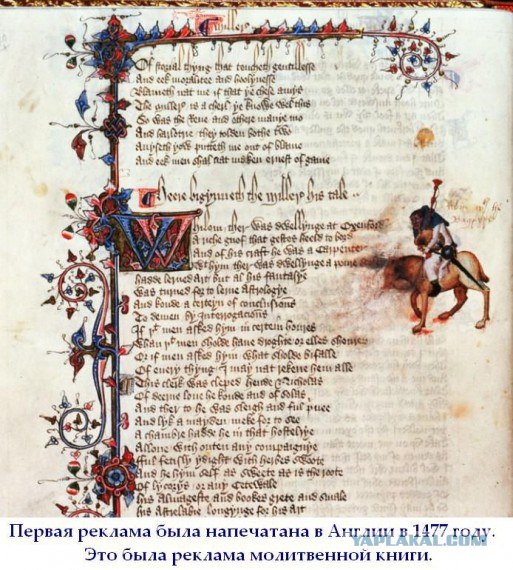 Of storial thyng that toucheth gentillesse
And eek moralitee and hoolynesse
Blameth nat me if that ye chese amys
The millere is a cherl ye knowe wel this
So was the Reve and othere manye mo
And harlotrie they tolden bothe two
Avyseth yow putteth me out of blame
And eek men shal nat maken ernest of game
Heere bigynneth the millere his tale
Whilom ther was dwellynge at Oxenford
A riche gnof that gestes heeld to bord
And of his craft he was a Carpenter
With hym ther was dwellynge a poure
hadde lerned Art but al his fantasye
Was turned for to lerne Astrologye
And koude a certeyn of conclusions
To demen by Interrogacions
If þt men asked hym in certein houres
Whan þt men sholde have droghte or elles shoures
Or if men asked hym what sholde bifalle
Of every thyng I may nat rekene hem alle
This clerk was cleped hende Nicholas
Of deerne love he koude and of solas
And ther to he was sleigh and ful privee
And lyk a mayden meke for to see
A chambre hadde he in that hostelrye
Allone with outen any compaignye
fful fetisly ydight with herbes swoote
And he hym self as sweete as is the roote
Of lycorys or any Cetewale
his Almageste and bookes grete and smale
his Astrelabie longynge for his Art
Первая реклама была напечатана в Англии в 1477 году.
Это была реклама молитвенной книги.
YAPLAKAL.COM